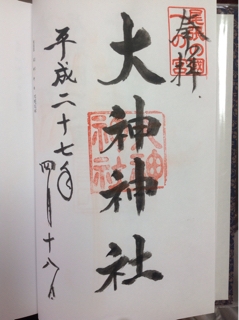 奉拝
大神神社
大神
神社
平成二十七年
四月十八日